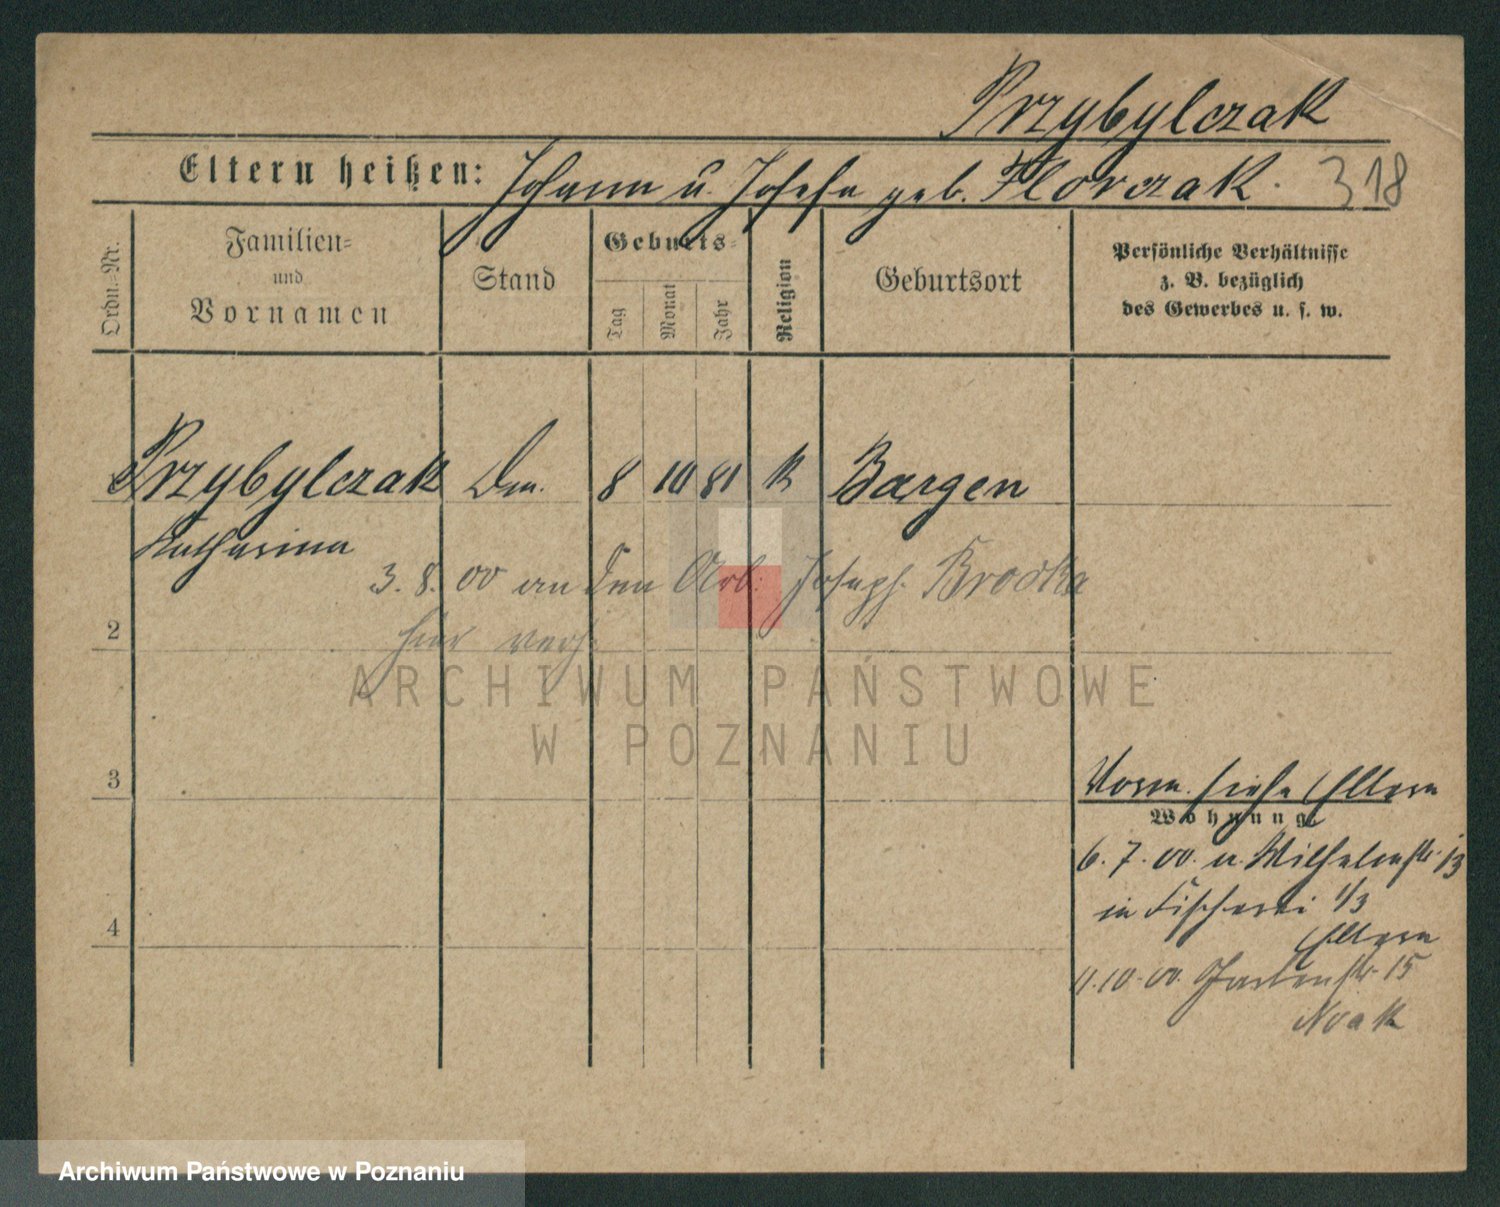 Przybylczak
Eltern heißen: Johann u. Josefa geb. Florczak. 318
Ordn.-Nr.
Familien-
und
Vornamen
Stand
Geburts-
Tag
Monat
Jahr
Religion
Geburtsort
Persönliche Verhältnisse
z. B. bezüglich
des Gewerbes u. s. w.
Przybylczak 8 10 81 K Bargen
Katharina
3. 8. 00 an den Arb. Joseph Brodka
2 hier verh.
ARCHIWUM PAŃSTWOWE
W POZNANIU
3
Vorm. siehe Eltern
Wohnung.
6. 7. 00. n. Wilhelmstr. 13
in Fischerei 1/3
4 Eltern
11.10.00. Gartenstr. 15
Noak
Archiwum Państwowe w Poznaniu